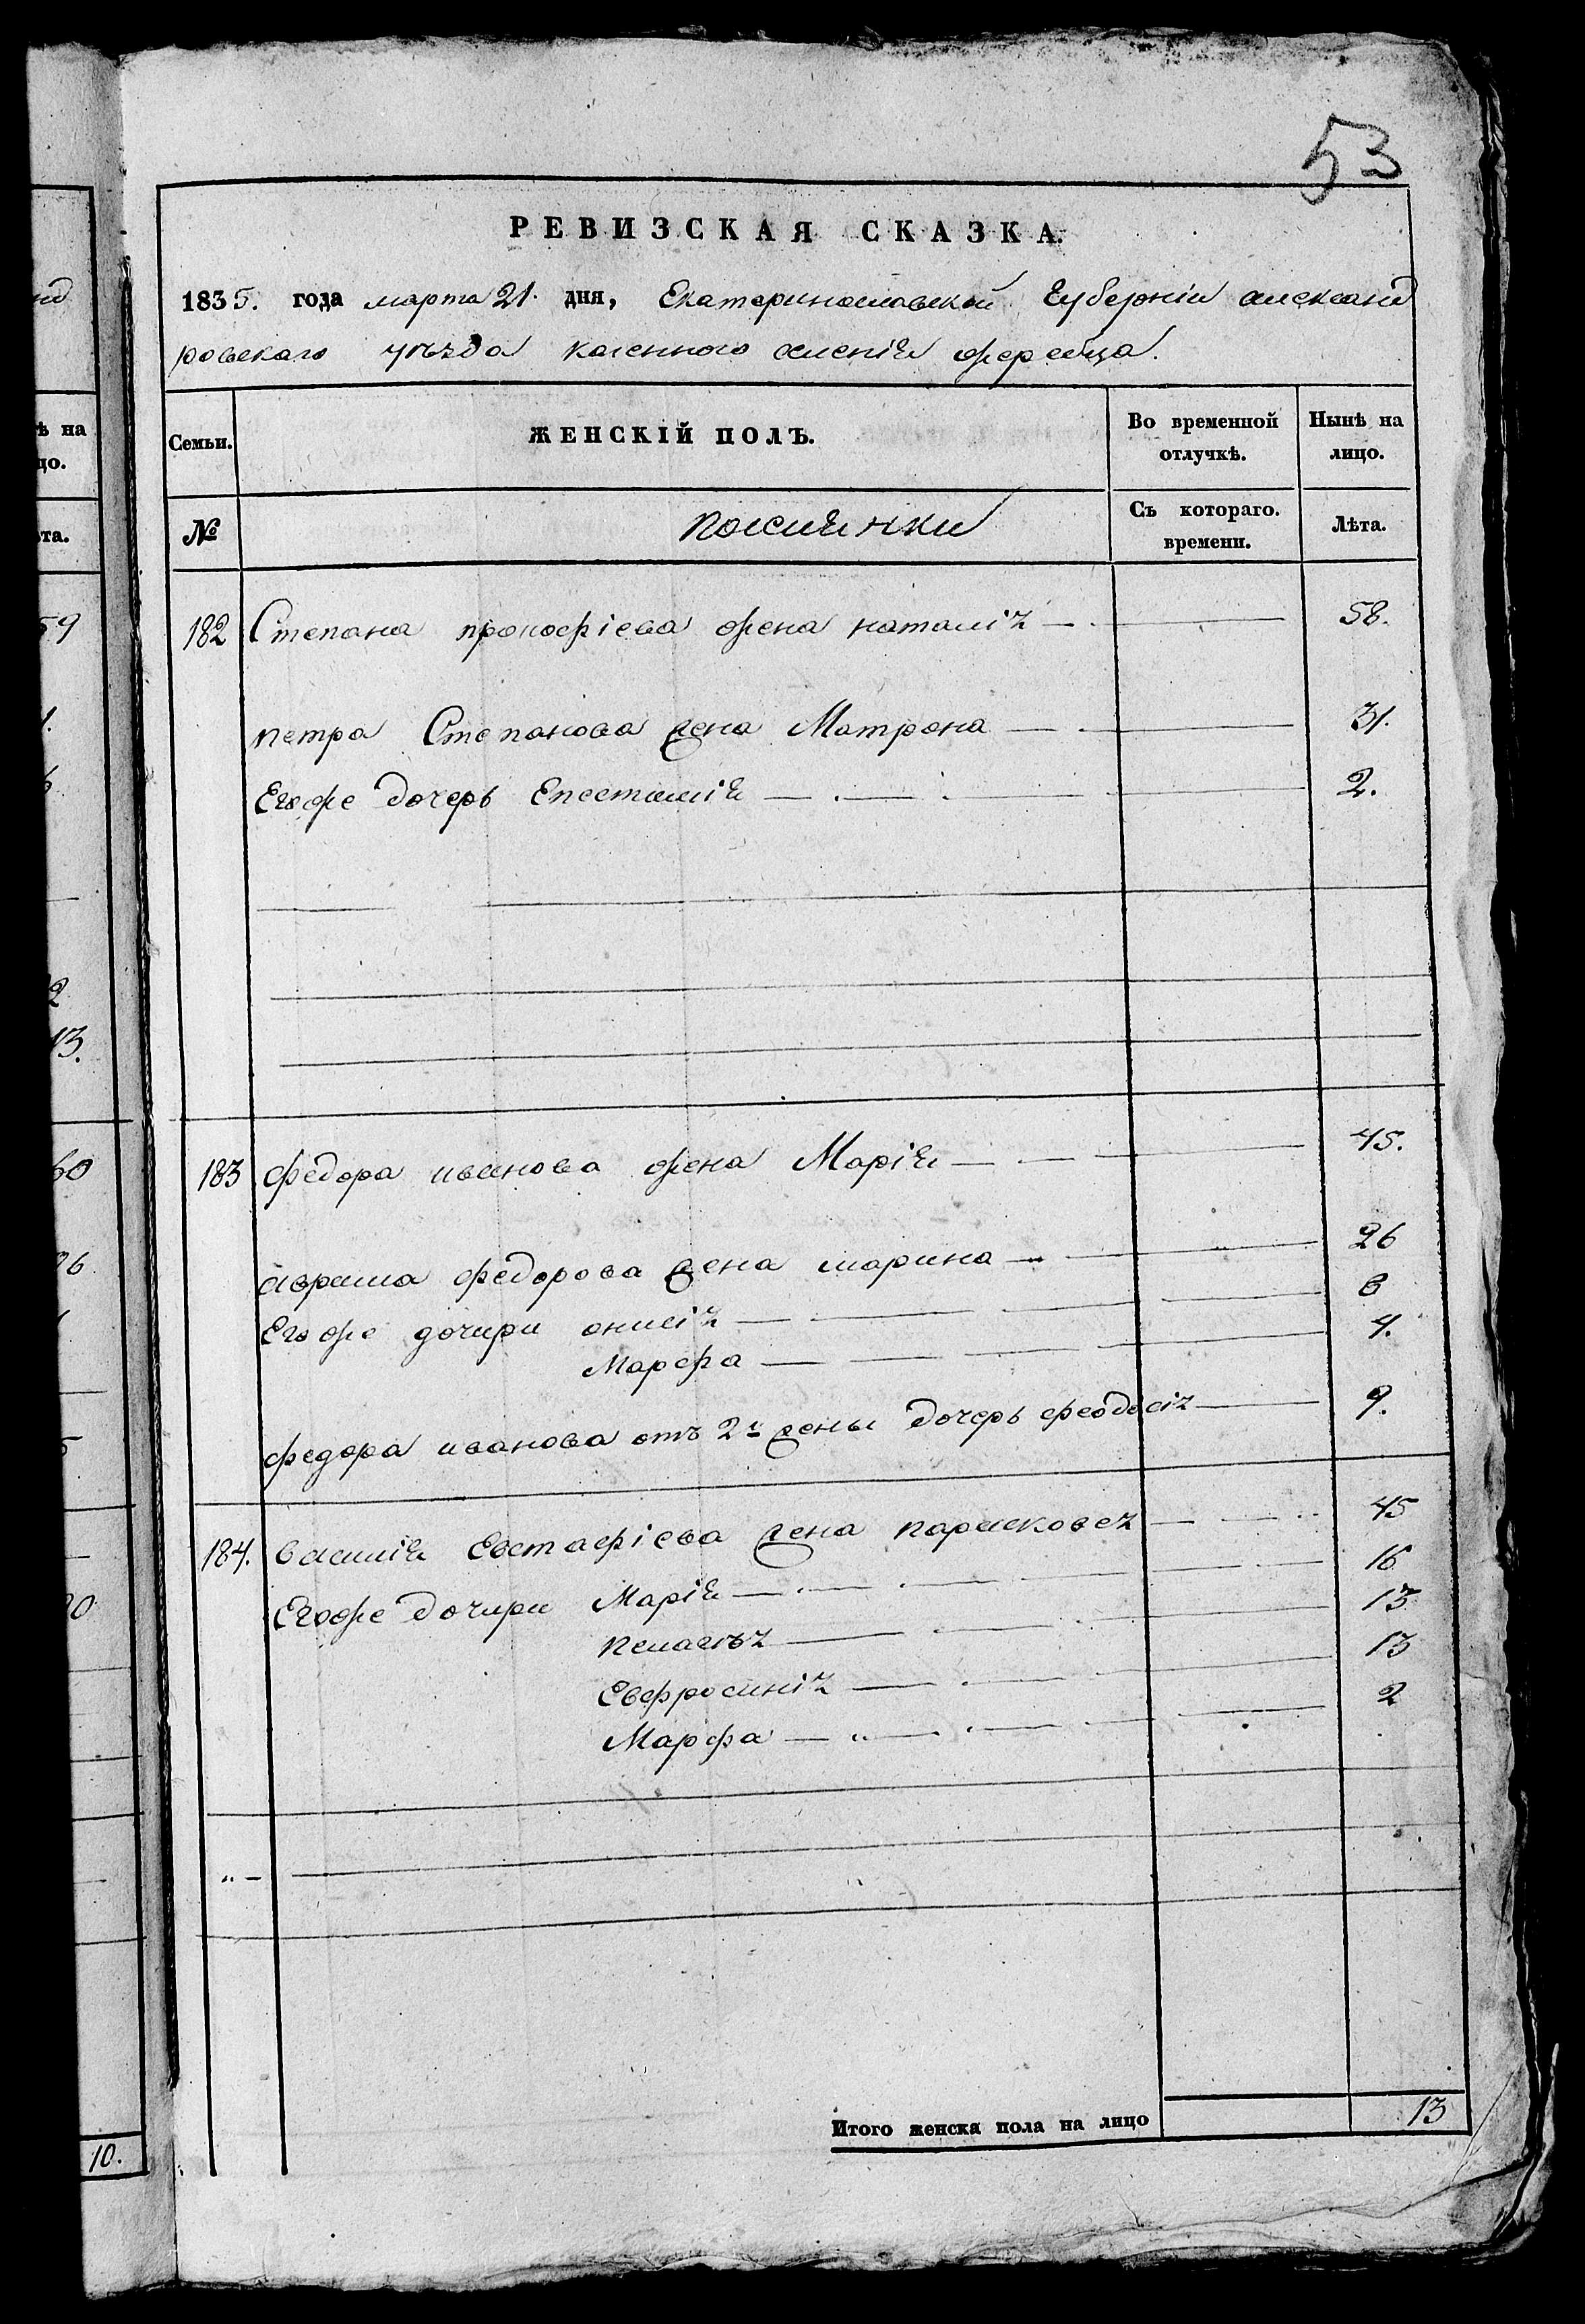 53
РЕВИЗСКАЯ СКАЗКА.
1835. года марта 21. дня, Екатеринославской Губерніи александ
ровскаго уѣзда казенного селенія жеребца.
Семьи.
ЖЕНСКІЙ ПОЛЪ.
Во временной отлучкѣ.
Нынѣ на лицо.
№
поселянки
Съ котораго. времени.
Лѣта.
182 Степана прокофіева жена наталія 58.
петра Степанова жена Матрона 31.
Егоже дочерь Епестимія 2.
183 федора иванова жена Марія 45.
аврама федорова жена марина 26
Егоже дочири анисія 6
Марфа 4.
федора иванова отъ 2й жены дочерь феодосія 9.
184. василія Евстафіева жена парасковея 45
Егоже дочири Марія 16
пелагѣя 13
Евфросинія 13
Марфа 2
Итого женска пола на лицо 13
ѣ на
цо.
та.
59
1.
2
13.
60
26
10.